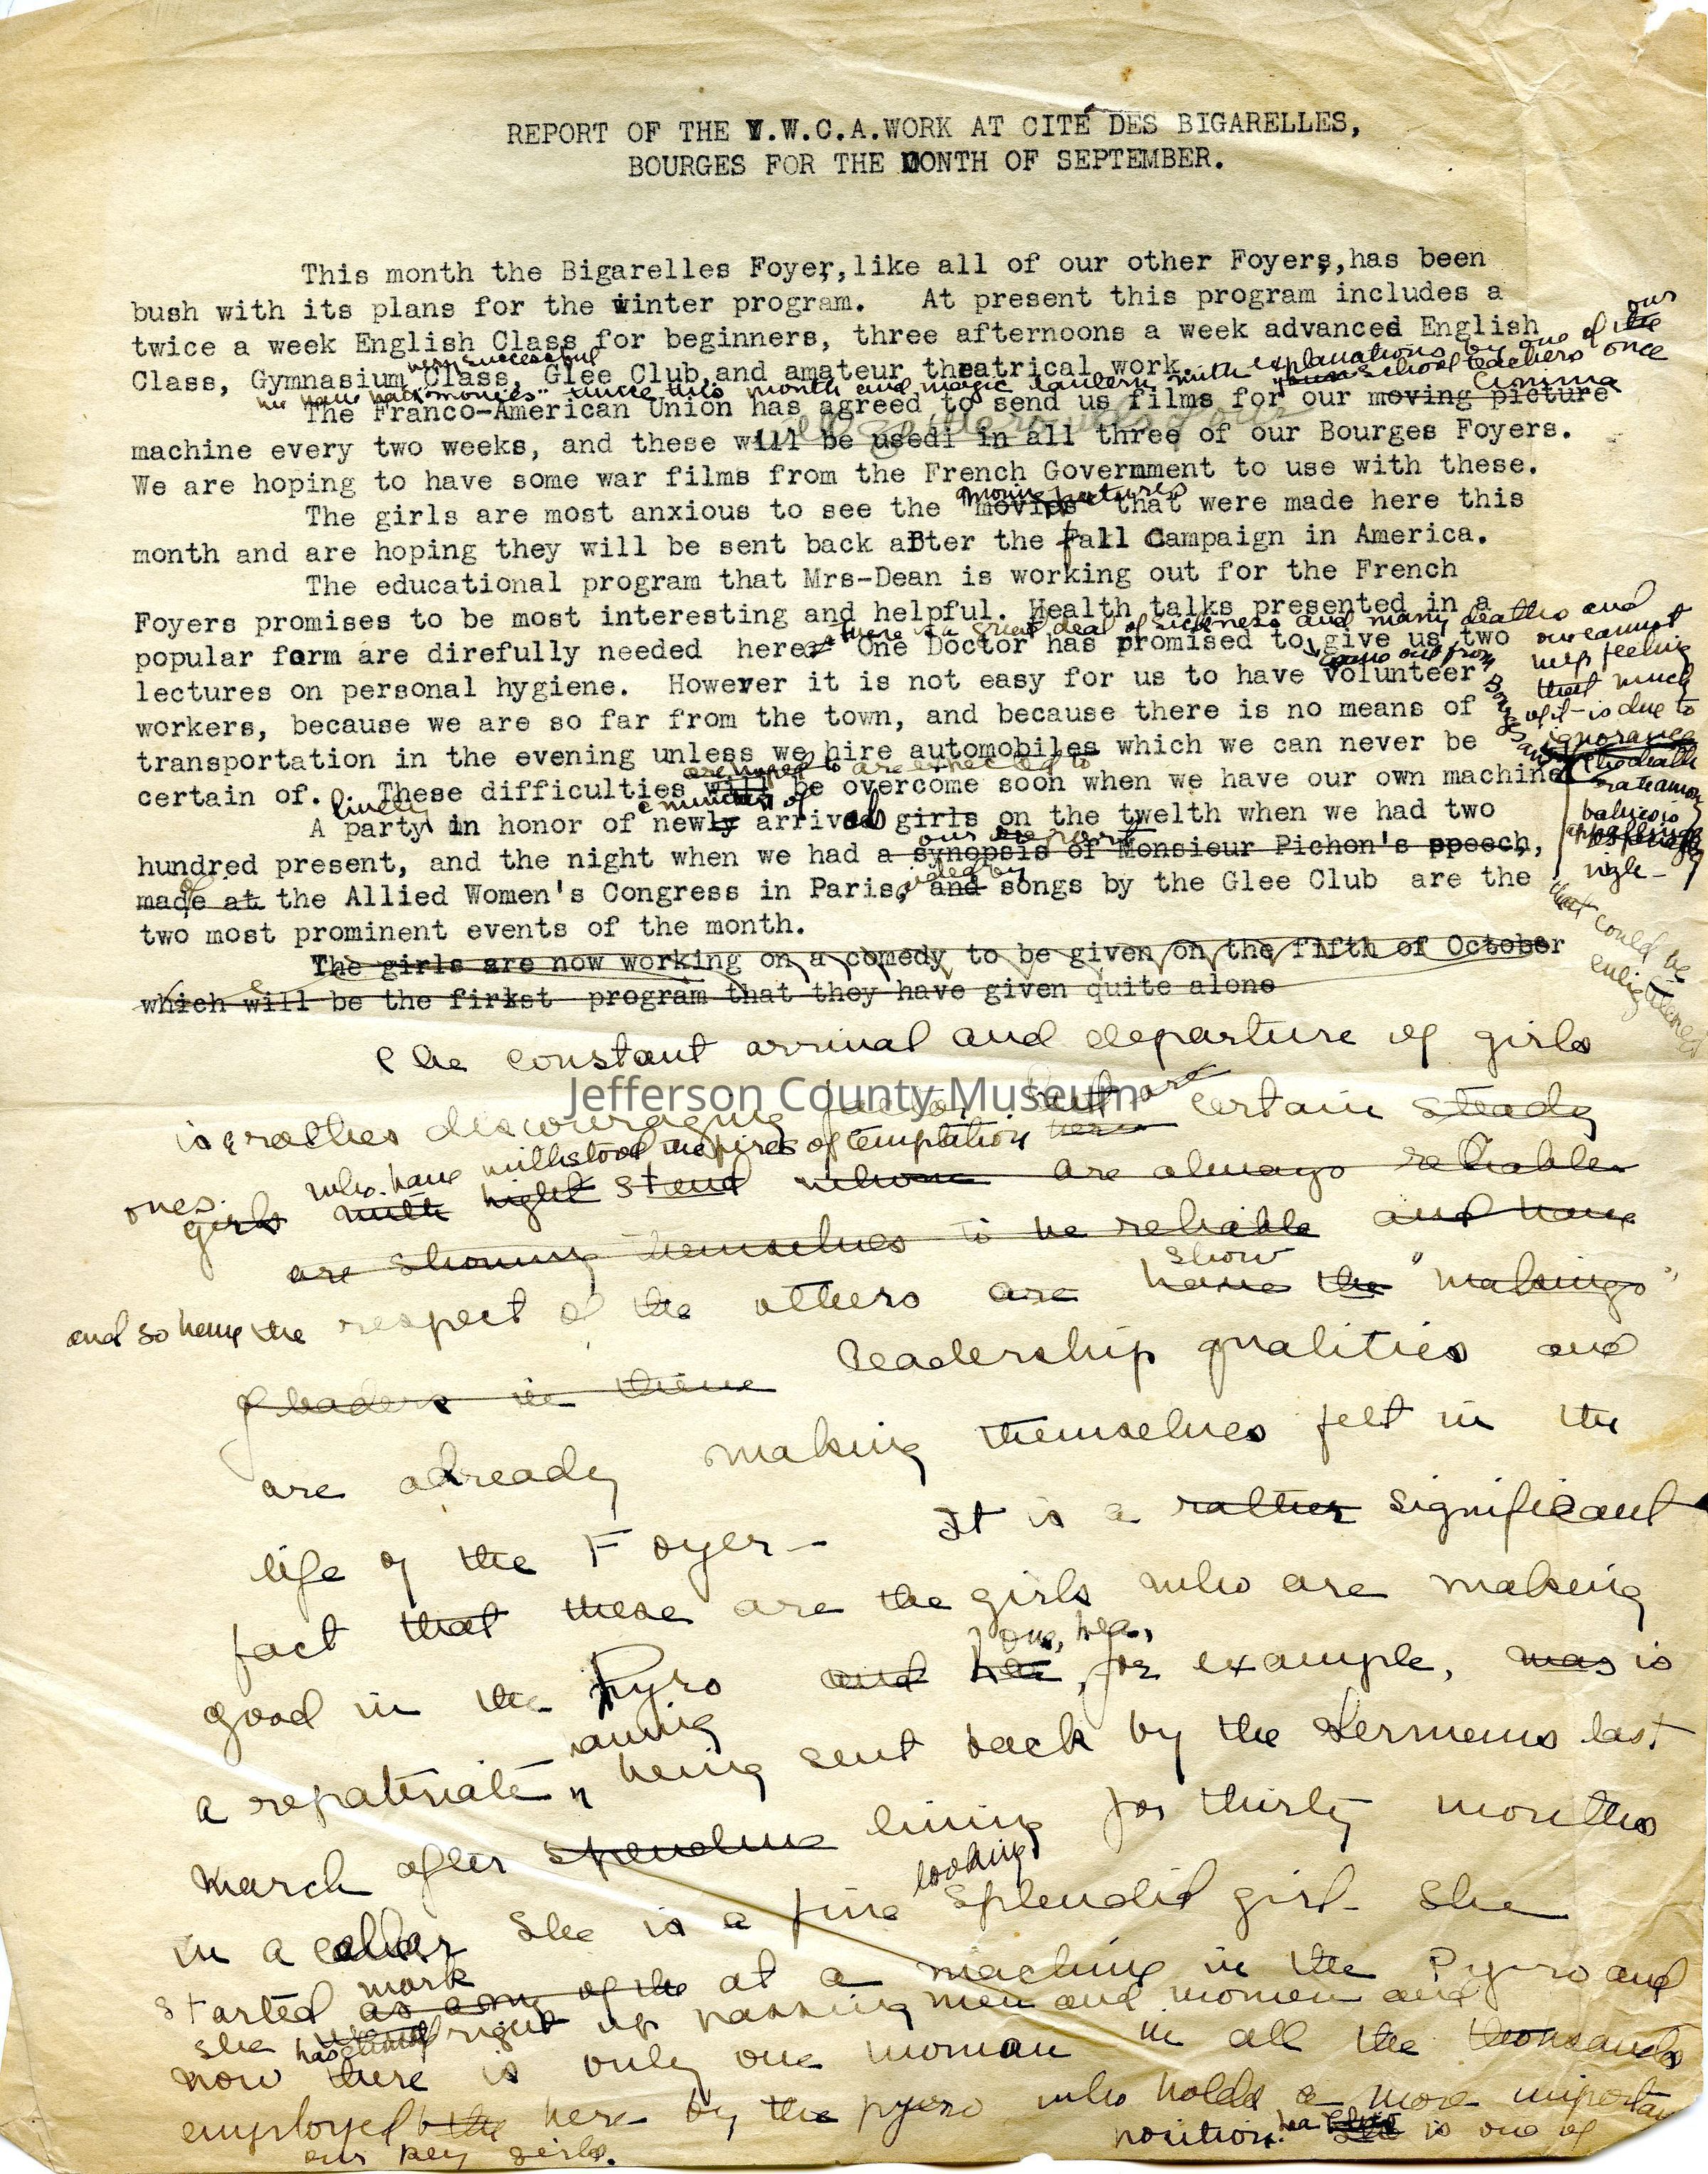 REPORT OF THE Y.W.C.A.WORK AT CITÉ DES BIGARELLES,
BOURGES FOR THE MONTH OF SEPTEMBER.
This month the Bigarelles Foyer,like all of our other Foyers,has been
bush with its plans for the winter program. At present this program includes a
twice a week English Class for beginners, three afternoons a week advanced English
our
Class, Gymnasium Class, Glee Club,and amateur theatrical work.
very successful
we have had "movies" twice this month and magic lantern with explanations by one of the school teachers once
The Franco-American Union has agreed to send us films for our moving picture
cinema
machine every two weeks, and these will be used in all three of our Bourges Foyers.
We are hoping to have some war films from the French Government to use with these.
moving pictures
The girls are most anxious to see the "movies" that were made here this
month and are hoping they will be sent back aBter the fall Campaign in America.
The educational program that Mrs-Dean is working out for the French
Foyers promises to be most interesting and helpful. Health talks presented in a
there is a great deal of sickness and many deaths and
popular form are direfully needed here. One Doctor has promised to give us two
one cannot help feeling that much of it is due to ignorance
come out from Bourges and
lectures on personal hygiene. However it is not easy for us to have volunteer
workers, because we are so far from the town, and because there is no means of
transportation in the evening unless we hire automobiles which we can never be
the death rate among babies is appallingly high-
that could be enlightened
are hoped to are expected to
certain of. These difficulties will be overcome soon when we have our own machine
lively
a number of
A party in honor of newly arrived girls on the twelth when we had two
our report
hundred present, and the night when we had a synopsis of Monsieur Pichon's speech,
of
made at the Allied Women's Congress in Paris, and songs by the Glee Club are the
two most prominent events of the month.
The girls are now working on a comedy to be given on the fifth of October
which will be the firkst program that they have given quite alone
The constant arrival and departure of girls
Jefferson County Museum
is a rather discouraging factor but are certain steady
who have withstood the fires of temptation here
ones. girls with right stand whom are always reliable
are showing themselves to be reliable and have
show
and so have the respect of the others are have the "makings"
of leaders in them leadership qualities and
are already making themselves felt in the
life of the Foyer- It is a rather significant
fact that these are the girls who are making
one, Lea,
good in the Pyro and Lea, for example, was is
a repatriate, having being sent back by the Germans last
March after spending living for thirty months
looking
in a cellar She is a fine splendid girl- She
work
started as one of the at a machine in the Pyro and
she has climbed right up passing men and women and
now there is only one woman in all the thousands
employed the here by the pyro who holds a more important
position. Lea is one of
our key girls.